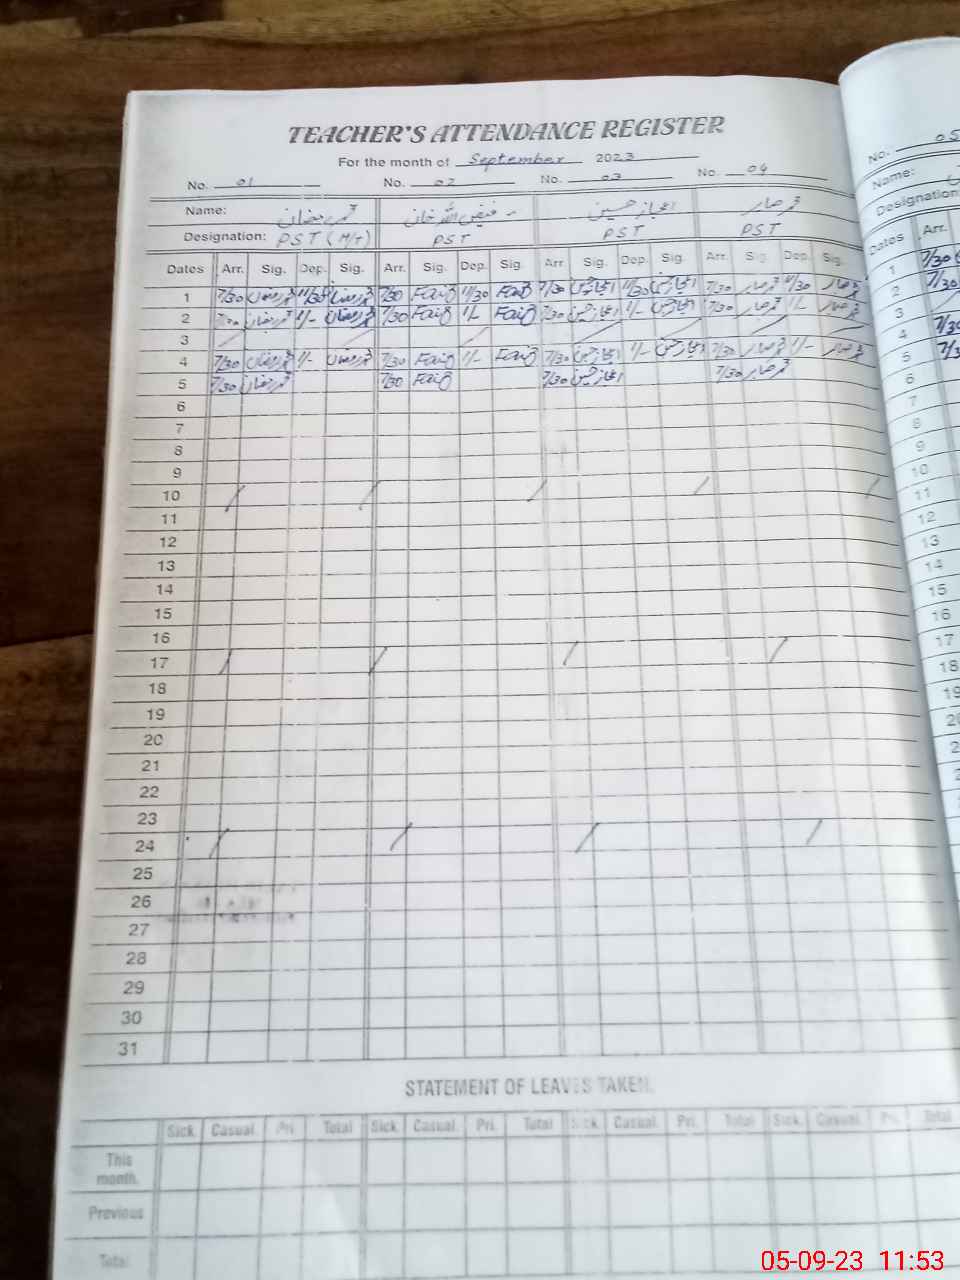 TEACHER'S ATTENDANCE REGISTER
For the month of September 2023
No. 01 No. 02 No. 03 No. 04
Name: محمد رمضان فیض اللہ خان اعجاز حسین محمد صابر
Designation: PST (H/T) PST PST PST
Dates Arr. Sig. Dep. Sig. Arr. Sig. Dep. Sig. Arr. Sig. Dep. Sig. Arr. Sig. Dep. Sig.
1 7/30 محمد رمضان 11/30 محمد رمضان 7/30 Faiz 11/30 Faiz 7/30 اعجاز حسین 11/30 اعجاز حسین 7/30 محمد صابر 11/30 محمد صابر
2 7/30 محمد رمضان 1/- محمد رمضان 7/30 Faiz 1/- Faiz 7/30 اعجاز حسین 1/- اعجاز حسین 7/30 محمد صابر 1/- محمد صابر
3
4 7/30 محمد رمضان 1/- محمد رمضان 7/30 Faiz 1/- Faiz 7/30 اعجاز حسین 1/- اعجاز حسین 7/30 محمد صابر 1/- محمد صابر
5 7/30 محمد رمضان 7/30 Faiz 7/30 اعجاز حسین 7/30 محمد صابر
6
7
8
9
10
11
12
13
14
15
16
17
18
19
20
21
22
23
24
25
26
27
28
29
30
31
STATEMENT OF LEAVES TAKEN.
Sick. Casual. Pri. Total Sick. Casual. Pri. Total Sick. Casual. Pri. Total Sick. Casual. Pri. Total
This
month.
Previous
Total
No. 05
Name:
Designation
Dates Arr.
1 7/30
2 7/30
3
4 7/30
5 7/3
6
7
8
9
10
11
12
13
14
15
16
17
18
19
05-09-23 11:53